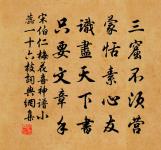 三窟不須營
蒙恬素心友
識盡天下書
只要文章手
宋伯仁梅花喜神譜小
蕊一十六枝詞典網集